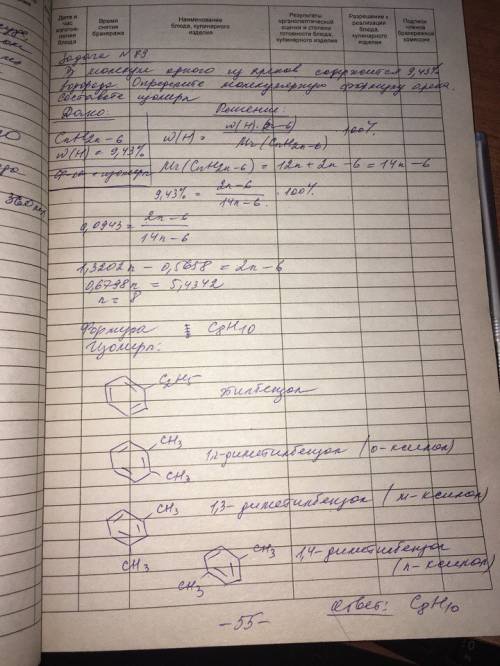 Дата и час изготовления блюда
Время снятия бракеража
Наименование блюда, кулинарного изделия
Результаты органолептической оценки и степени готовности блюда, кулинарного изделия
Разрешение к реализации блюда, кулинарного изделия
Подписи членов бракеражной комиссии
Задача № 89
В молекуле одного из аренов содержится 9,43%
водорода. Определите молекулярную формулу арена.
Составьте изомеры
Дано: Решение:
CnH2n-6
w(H) = 9,43%
w(H) = w(H)·(2n-6) / Mr(CnH2n-6) · 100%
Mr(CnH2n-6) = 12n + 2n - 6 = 14n - 6
9,43% = 2n-6 / 14n-6 · 100%
0,0943 = 2n-6 / 14n-6
1,3202n - 0,5658 = 2n - 6
0,6798n = 5,4342
n = 8
Формула C8H10
Изомеры:
C2H5
этилбензол
CH3
CH3
1,2-диметилбензол (о-ксилол)
CH3
CH3
1,3-диметилбензол (м-ксилол)
CH3
CH3
1,4-диметилбензол
(п-ксилол)
Ответ: C8H10
-55-